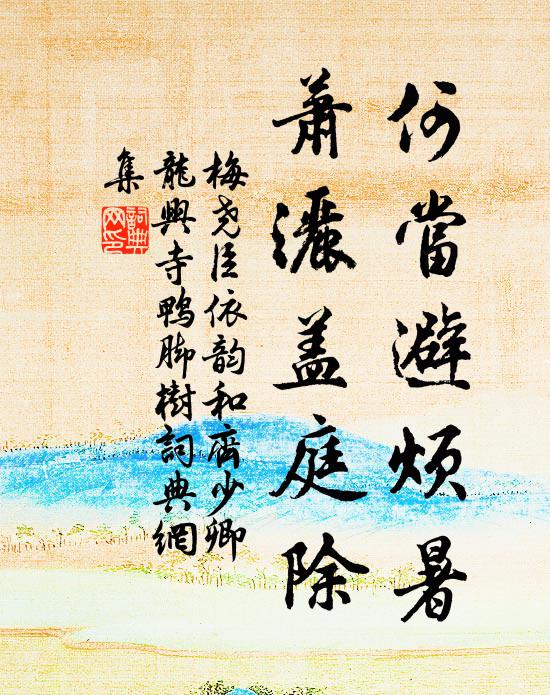 何當避煩暑
蕭灑盖庭除
梅尧臣依韵和齊少卿
龍興寺鸭脚樹詞典網
集
詞典
网印